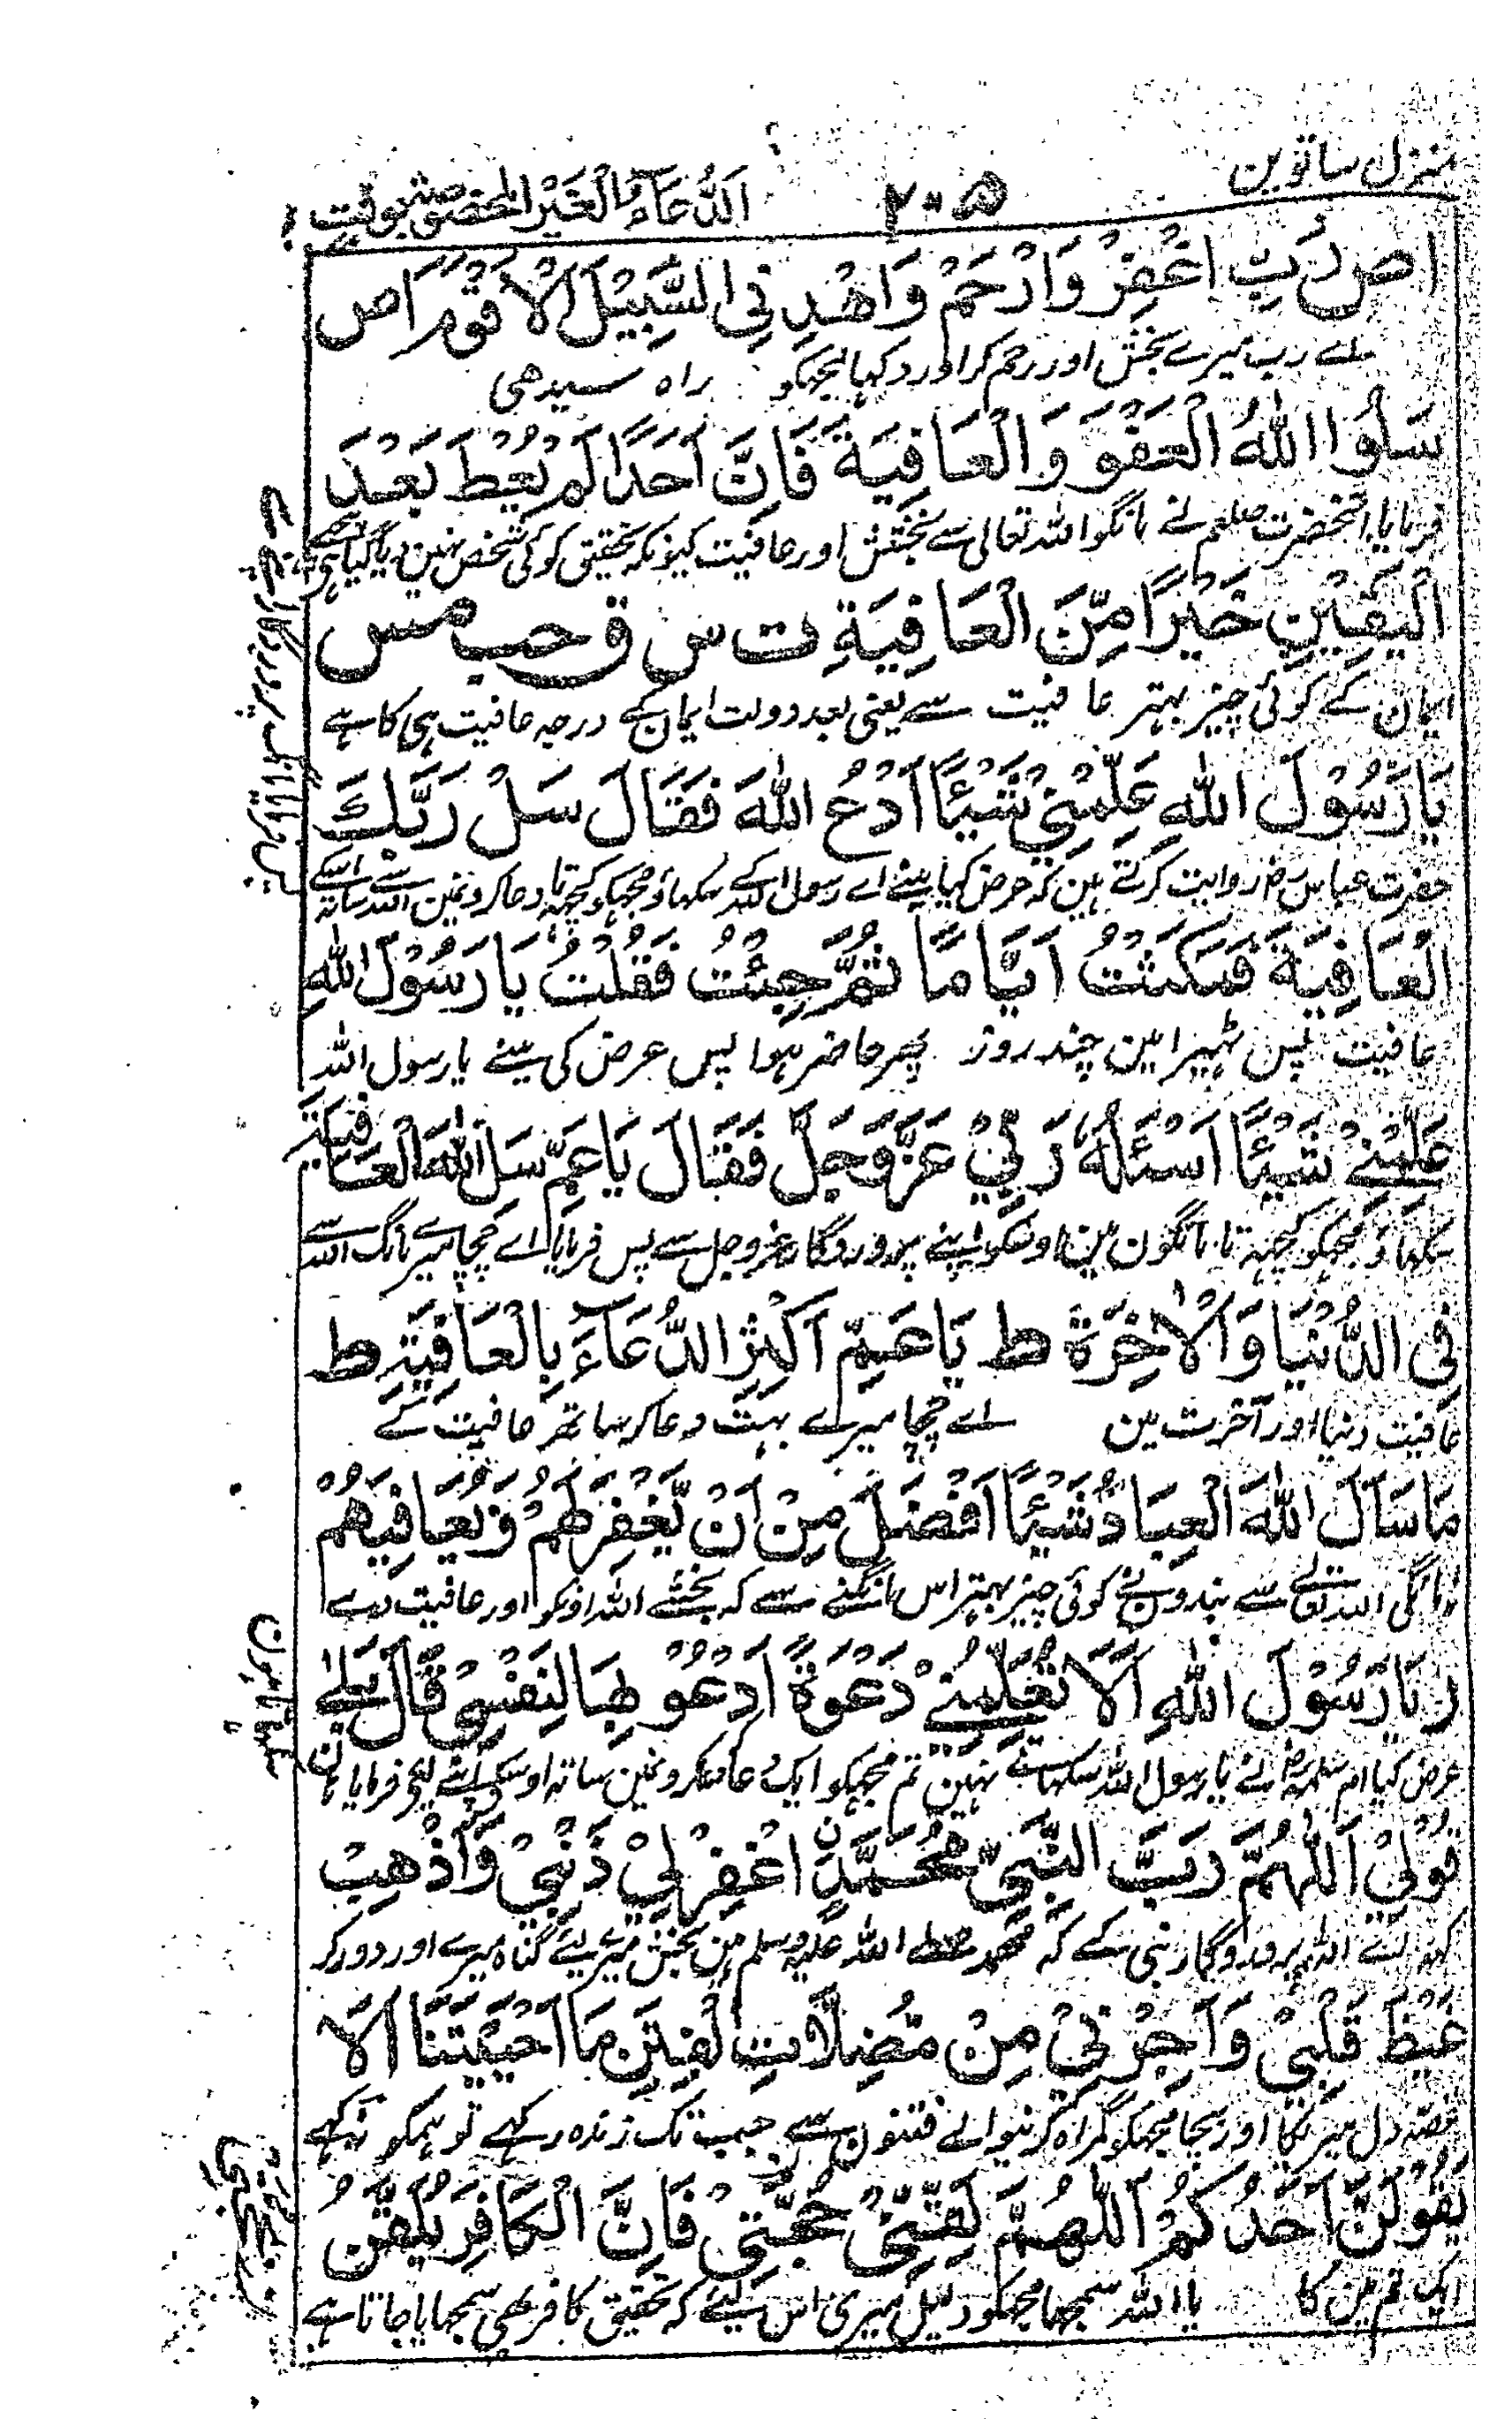 منزل ساتوین ۲۰۵ اَلدُّعَآءُ الْغَیْرُ الْمَخْصُوْصِ بِوَقْتٍ
اص رَبِّ اغْفِرْ وَارْحَمْ وَاهْدِنِی السَّبِیْلَ الْاَقْوَمَ اص
اے رب میرے بخش اور رحم کر اور دکہا مجہکو راہ سیدھی
سَلُوا اللّٰهَ الْعَفْوَ وَالْعَافِیَةَ فَاِنَّ اَحَدًا لَمْ یُعْطَ بَعْدَ
فرمایا آنحضرت صلعم نے مانگو اللہ تعالی سے بخشش اور عافیت کیونکہ تحقیق کوئی شخص نہین دیا گیا ہی پیچھے
الْیَقِیْنِ خَیْرًا مِّنَ الْعَافِیَةِ ت س ق حب مس
ایمان کے کوئی چیز بہتر عافیت سے یعنی بعد دولت ایمان کے درجہ عافیت ہی کا ہے
یَا رَسُوْلَ اللّٰهِ عَلِّمْنِیْ شَیْئًا اَدْعُ اللّٰهَ فَقَالَ سَلْ رَبَّكَ
حضرت عباس رض روایت کرتے ہین کہ عرض کیا مینے اے رسول اللہ کے سکہاؤ مجہکو کچہہ تا دعا کرون مین اللہ سے ساتہ اسکے
الْعَافِیَةَ فَمَكَثْتُ اَیَّامًا ثُمَّ جِئْتُ فَقُلْتُ یَا رَسُوْلَ اللّٰهِ
عافیت پس ٹہیرا مین چند روز پھر حاضر ہوا پس عرض کی مینے یا رسول اللہ
عَلِّمْنِیْ شَیْئًا اَسْئَلُهُ رَبِّیْ عَزَّوَجَلَّ فَقَالَ یَا عَمِّ سَلِ اللّٰهَ الْعَافِیَةَ
سکہاؤ مجہکو کچہہ تا مانگون مین اوسکو اپنے پروردگار عزوجل سے پس فرمایا اے چچا میرے مانگ اللہ سے
فِی الدُّنْیَا وَالْاٰخِرَةِ ط یَا عَمِّ اَكْثِرِ الدُّعَآءَ بِالْعَافِیَةِ ط
عافیت دنیا اور آخرت مین اے چچا میرے بہت دعا کر ساتھ عافیت کے
مَا سَاَلَ اللّٰهَ الْعِبَادُ شَیْئًا اَفْضَلَ مِنْ اَنْ یَّغْفِرَ لَهُمْ وَیُعَافِیَهُمْ
مانگی اللہ تعالے سے بندون نے کوئی چیز بہتر اس مانگنے سے کہ بخشے اللہ اونکو اور عافیت دے
ر یَا رَسُوْلَ اللّٰهِ اَلَا تُعَلِّمُنِیْ دَعْوَةً اَدْعُوْ بِهَا لِنَفْسِیْ قَالَ بَلٰی
عرض کیا ام سلمہ رض نے یا رسول اللہ سکہاتے نہین تم مجہکو ایک دعا کہ کرون مین ساتہ اوسکے اپنے لیے فرمایا ہان
قُوْلِیْ اَللّٰهُمَّ رَبَّ النَّبِیِّ مُحَمَّدٍ نِ اغْفِرْ لِیْ ذَنْبِیْ وَاَذْهِبْ
کہہ اے اللہ پروردگار نبی کے کہ محمد صلے اللہ علیہ وسلم ہین بخش میرے لیے گناہ میرے اور دور کر
غَیْظَ قَلْبِیْ وَاَجِرْنِیْ مِنْ مُّضِلَّاتِ الْفِتَنِ مَا اَحْیَیْتَنَا ا لَا
غصہ دل میرے کا اور بچا مجہکو گمراہ کرنیوالے فتنون سے جب تک زندہ رکہے تو ہمکو نہ کہے
یَقُوْلَنَّ اَحَدُكُمْ اَللّٰهُمَّ لَقِّنِّیْ حُجَّتِیْ فَاِنَّ الْكَافِرَ یُلَقَّنُ
ایک تم مین کا یا اللہ سمجھا مجہکو دلیل میری اس لیے کہ تحقیق کافر بھی سمجھایا جاتا ہے